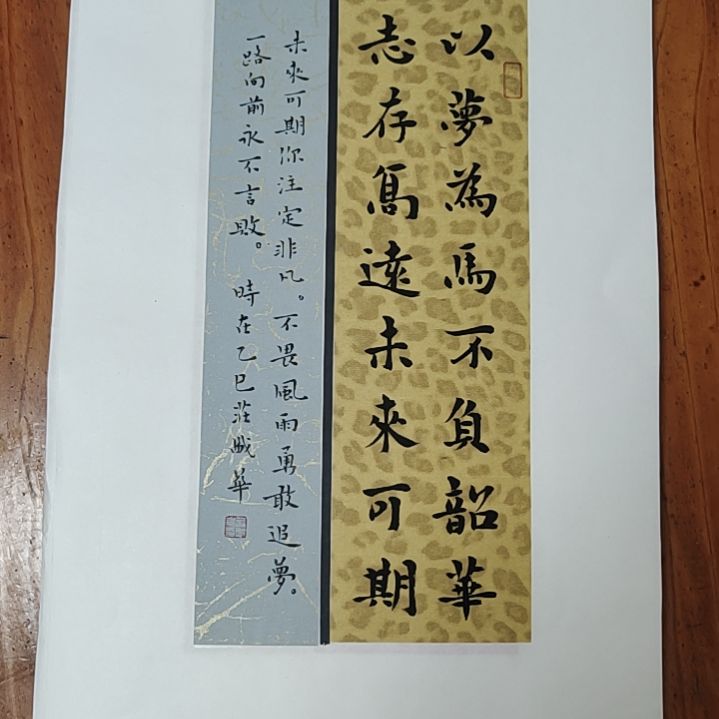 以夢為馬不負韶華
志存高遠未來可期
未來可期你注定非凡。不畏風雨勇敢追夢。
一路向前永不言敗。 時在乙巳莊晠華